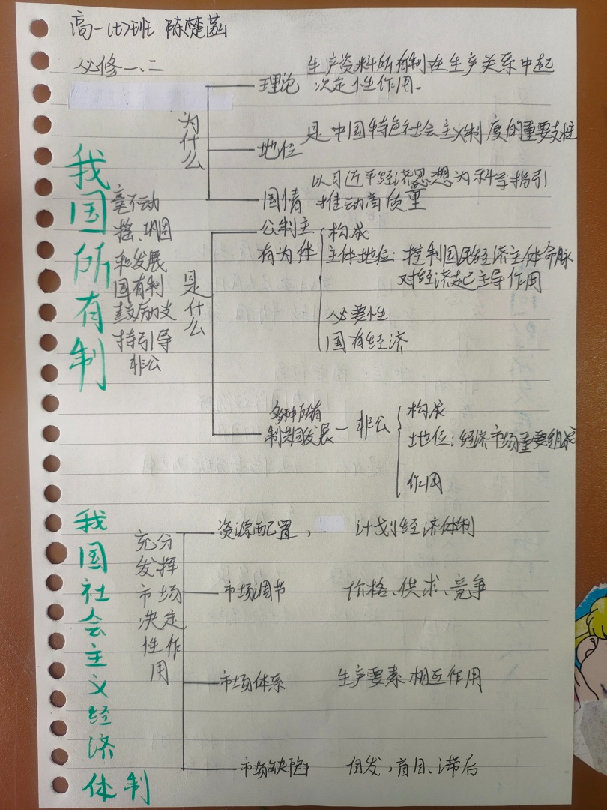 高一(七)班 陈楚菡
必修一、二
我国所有制
毫不动
摇、巩固
和发展
国有制
鼓励支
持引导
非公
为什么
理论 生产资料所有制在生产关系中起
决定性作用.
地位 是中国特色社会主义制度的重要支柱
国情 以习近平经济思想为科学指引
推动高质量
是什么
公制主
有为体
构成
主体地位: 控制国民经济主体命脉
对经济起主导作用
必要性
国有经济
多种所有
制共同发展 - 非公
构成
地位: 经济市场重要组成
作用
我国社会主义经济体制
充分
发挥
市场
决定
性作
用
资源配置, 计划经济体制
市场调节 价格、供求、竞争
市场体系 生产要素 相互作用
市场缺陷 自发,盲目、滞后